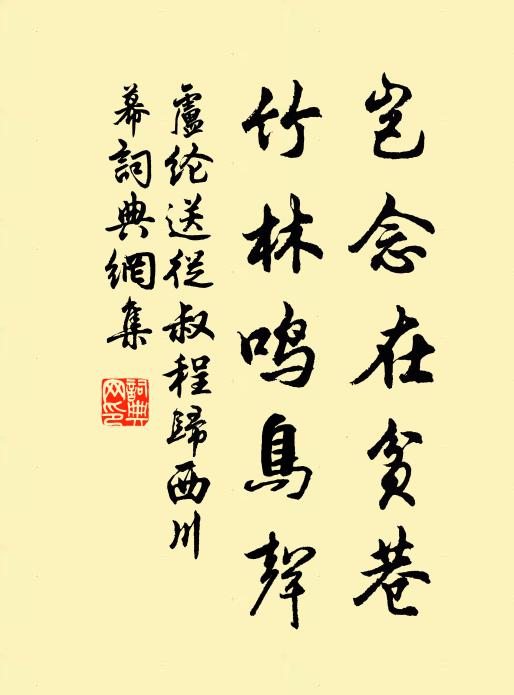 岂念在贫巷
竹林鸣鸟声
盧纶送從叔程歸西川
幕詞典網集
詞典网印